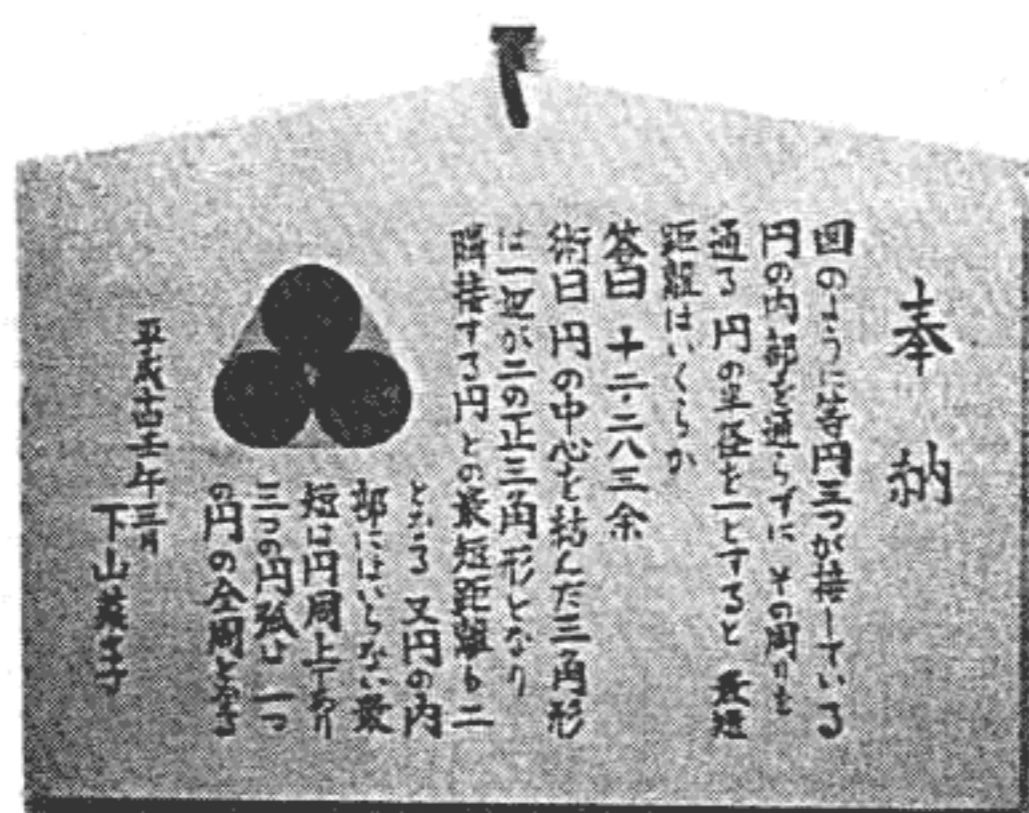 奉納
図のように等円三つが接している
円の内部を通らずに その周りを
通る 円の半径を一とすると 最短
距離はいくらか
答曰 十二・二八三余
術曰 円の中心を結んだ三角形
は一辺が二の正三角形となり
隣接する円との最短距離も二
となる 又円の内
部にはいらない最
短は円周上であり
三つの円弧は 一つ
の円の全周となる
平成十五年三月
下山